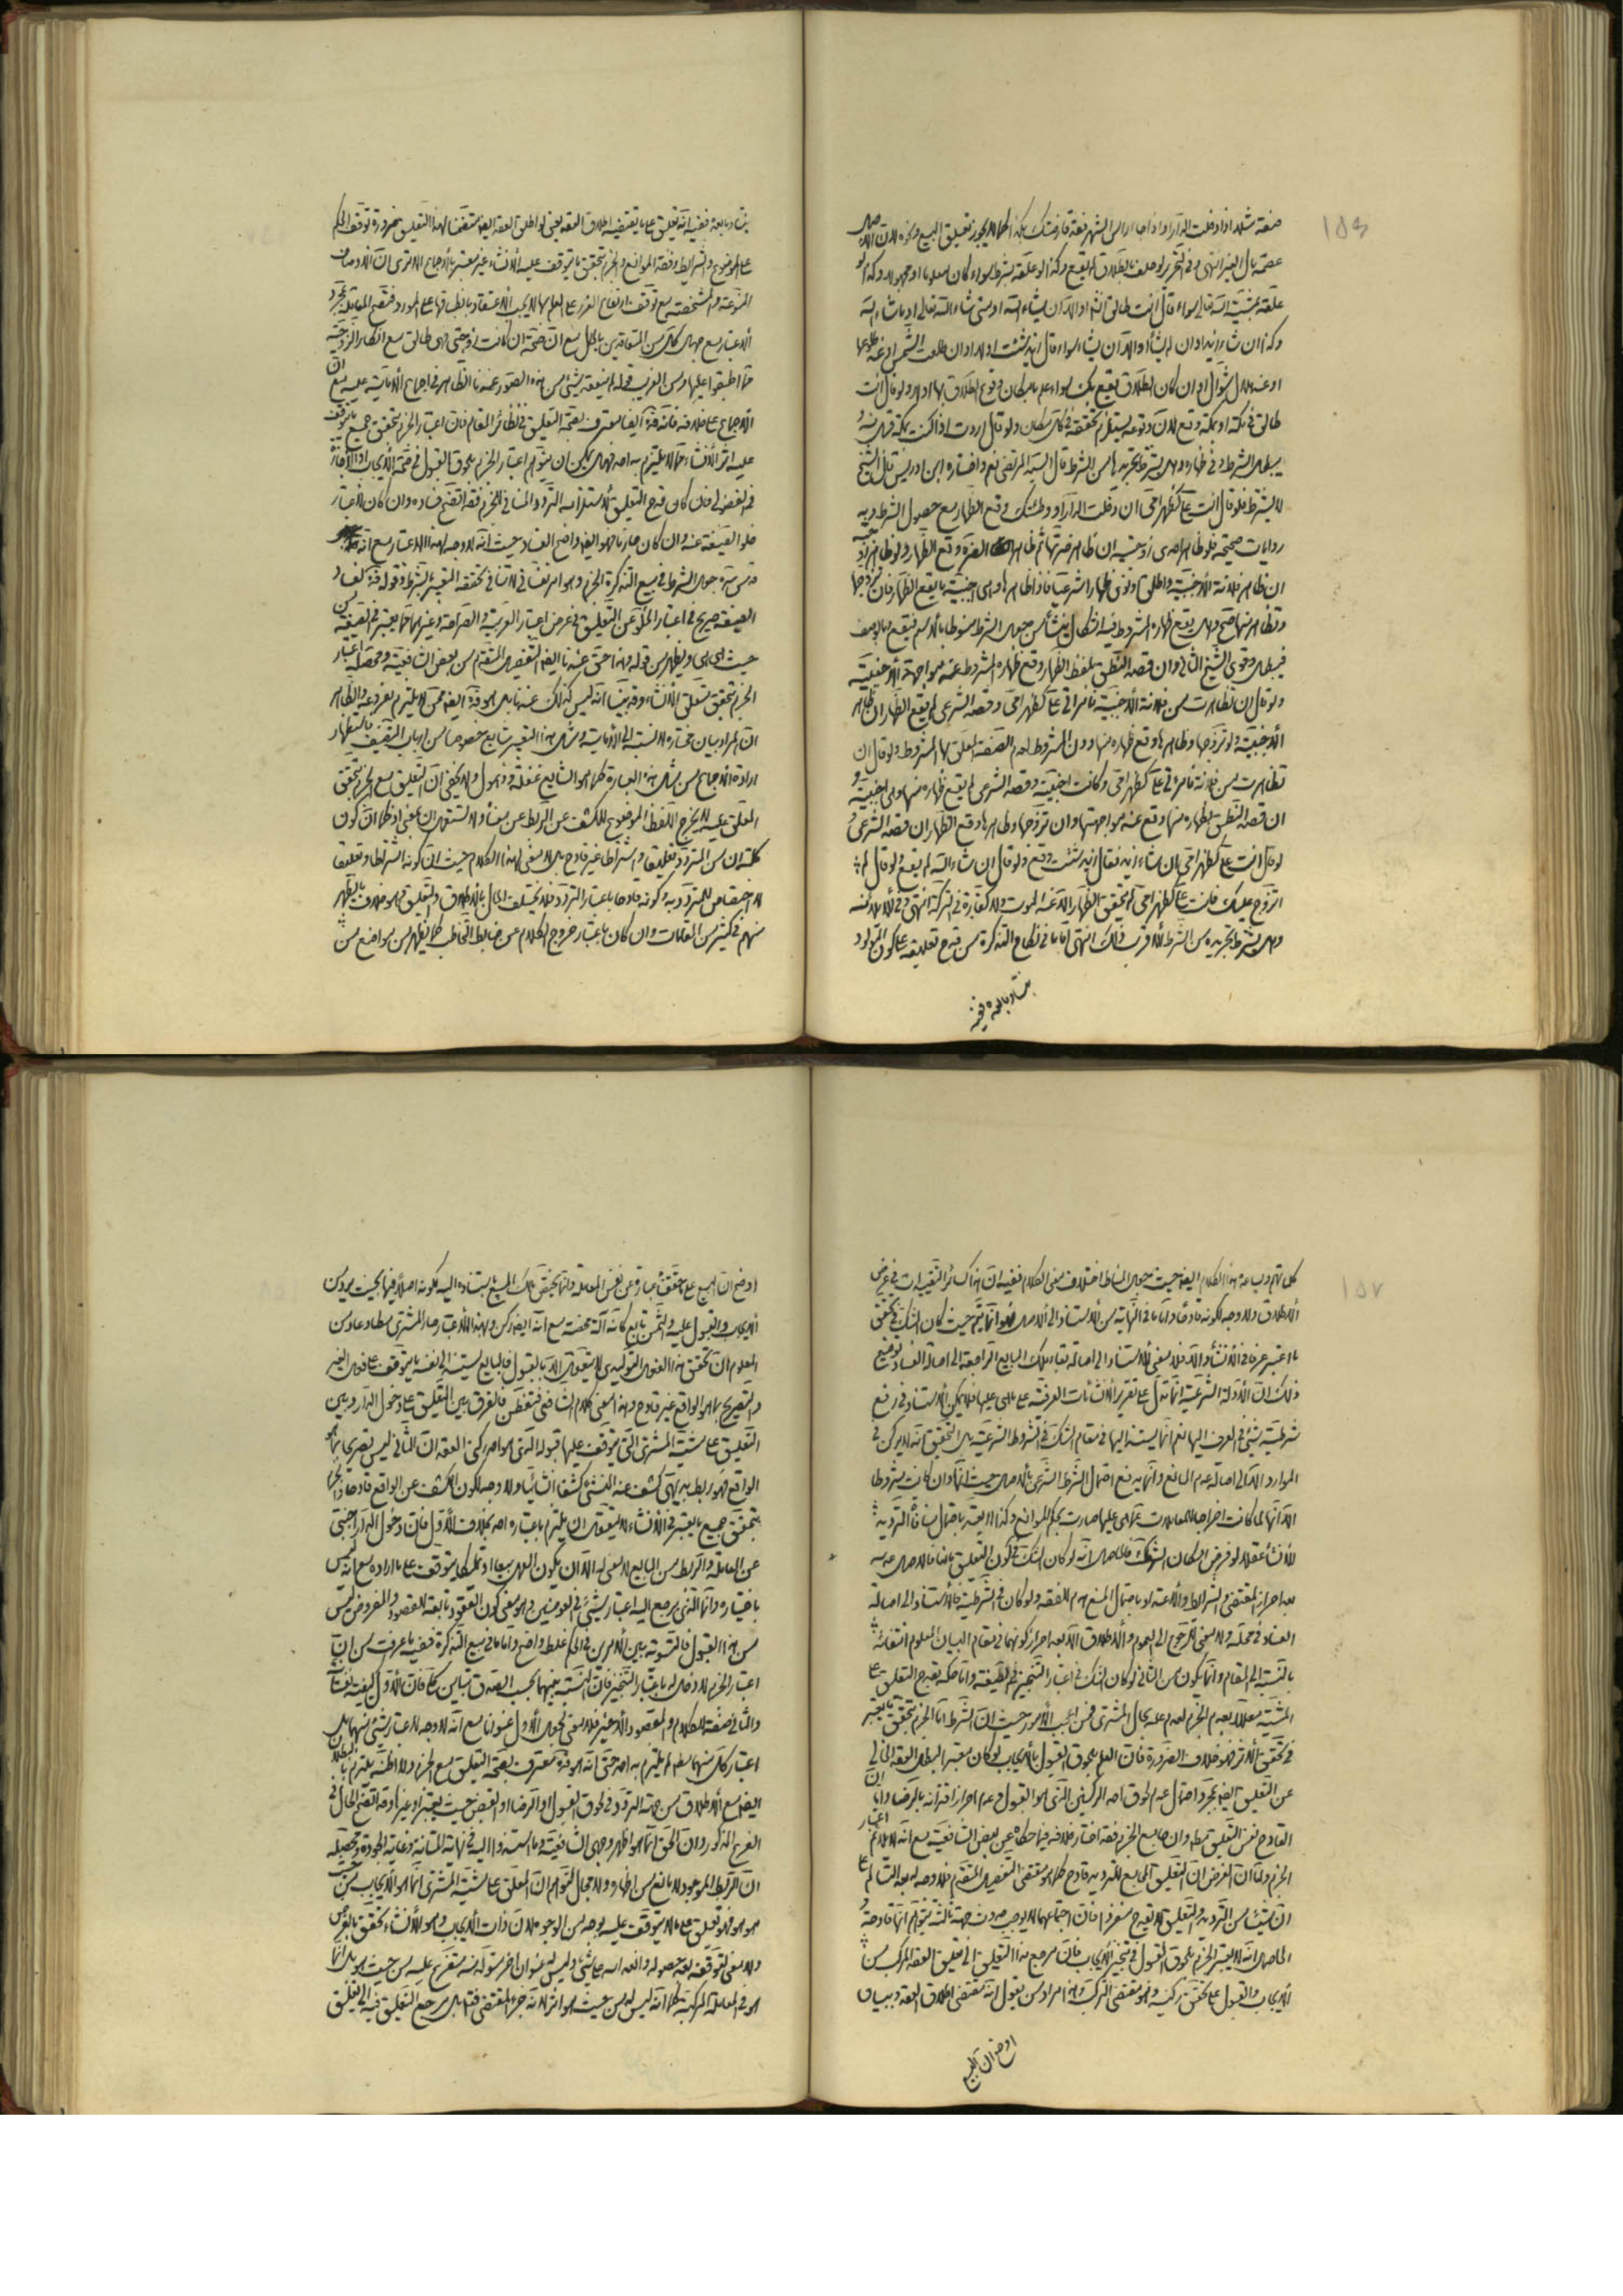 ١٥٦
صفة مثلا اذا دخلت الدار او اذا جاء راس الشهر فقد فارقتك بكذا كما لا يجوز تعليق البيع ونحوه لان الاصل
عصمة مال الغير انتهى وفى التحرير لو حلف بالطلاق لم يقع وكذا لو علقه بشرط سواء كان معلوما او مجهولا وكذا لو
علقه بمشية الله تعالى سواء قال انت طالق لله او الا ان يشاء الله او متى شاء الله تعالى او ما شاء الله
وكذا ان شاء زيد او ان لم يشأ او الا ان يشاء سواء قال زيد شئت او لا او ان طلعت الشمس او عند طلوعها
او عند هلال شوال او ان كان الطلاق يقع بك سواء علم بامكان وقوع الطلاق بها او لا ولو قال انت
طالق فى مكة او بمكة وقع لان وقوعه يستلزم تحققه فى كل مكان ولو قال اردت اذا كنت بمكة
يبطل الشرط وفى ظهاره وهل يشترط تجريدها من الشرط قال السيد المرتضى نعم واختاره ابن ادريس قال الشيخ
لا يشترط فلو قال انت على كظهر امى ان دخلت الدار او وطئتك وقع الظهار مع حصول الشرط وبه
روايات صحيحة فلو ظاهر احدى زوجتيه ان ظاهر ضرتها ثم ظاهر الضرة وقع الظهار ولو ظاهر زوجته
ان ظاهر فلانة الاجنبية واطلق او نوى ظهارا شرعيا فاذا ظاهرها وهى اجنبية لم يقع الظهار فان تزوجها
وظاهر منها صح وهل يقع ظهاره المشروط فيه اشكال ينشأ من جعل الشرط منوطا بالاسم فيقع او بالوصف
فيبطل وقوى الشيخ الثانى وان قصد النطق بلفظ الظهار وقع ظهاره المشروط عند مواجهة الاجنبية
ولو قال ان تظاهرت من فلانة الاجنبية فامراتى على كظهر امى وقصد الشرعى لم يقع الظهار ان ظاهر
الاجنبية ولو تزوجها وظاهرها وقع ظهاره منها دون المشروط لعدم الصفة المعلق بها المشروط ولو قال ان
تظاهرت من فلانة فامرأتى على كظهر امى وكانت اجنبية وقصد الشرعى لم يقع ظهاره منها وهى اجنبية و
ان قصد النطق بظهاره منها وقع عند مواجهتها وان تزوجها وظاهرها وقع الظهار ان قصد الشرعى و
لو قال انت على كظهر امى ان شاء زيد فقال زيد شئت وقع ولو قال ان شاء الله لم يقع ولو قال لم
اتزوج عليك فانت على كظهر امى لم يتحقق الظهار الا عند الموت ولا كفارة فى التركة انتهى وفى الايلاء منه
وهل يشترط تجريده من الشرط الاقرب ذلك انتهى اما ما فى نكاح التذكرة من قدح تعليقه على كون المولود
بنتا وما بعده ففيه
بنتا وما بعده ففيه انه تعليق على ما يقتضيه اطلاق العقد يعنى لو اطلق العقد ايضا متضمنا لهذا التعليق ضرورة توقف الحكم
على الموضوع والشرايط وفقد الموانع والجزم بتحقق ما يتوقف عليه الانشاء غير معتبر بالاجماع الا ترى ان الاوصاف
المنوعة والمشخصة مع توقف ارتفاع الغرر على العلم بها لا يجب الاعتقاد بانطباقها على المورد فتصح المقابلة بمجرد
الاعتبار مع جهل كل من المتعاقدين بالحال مع ان صحة ان كانت زوجتى فهى طالق مع انكار الزوجية
مما اطبقوا عليها ومن الغريب قوله لم ينعقد بشئ من هذه الصور عندنا الظاهر فى اجماع الامامية عليه مع ان
الاجماع على خلافه فانه قدس سره ايضا معترف بصحة التعليق فى نظائر المقام فان اعتبار الجزم بتحقق جميع ما يتوقف
عليه اثر الانشاء مما لا يلتزم به احد فهل يمكن ان يتوهم اعتبار الجزم بلحوق القبول فى صحة الايجاب او الاجازة
فى الفضولى فان كان قدح التعليق لاستلزامه التردد المنافى للجزم فقد اتضح فساده وان كان لاعتبار
خلو الصيغة عنه وان كان جازما فهو ايضا واضح الفساد حيث انه لا وجه لهذا الاعتبار مع انه
قدس سره جعل الشرط فى بيع التذكرة الجزم وهو امر نفسانى لا تنافى تحققه التعبير بالشرط وقوله قدس سره لفساد
الصيغة صريح فى اعتبار الخلو عن التعليق فى عرض اعتبار العربية والصراحة وغيرهما مما يعتبر فى الصيغة من
حيث هى هى ويظهر من قوله وهذا حق عندنا ايضا التفصيل المتقدم من بعض الشافعية ومحصله اعتبار
الجزم بتحقق متعلق الانشاء وقد بينا انه ليس كذلك عندنا بل هو قدس سره ايضا ممن لا يلتزم بفروعه والظاهر
ان المراد بيان مختاره لا النسبة الى الامامية ومثل هذا التعبير شايع خصوصا من ارباب التصنيف فاستظهار
ارادة الاجماع من مثل هذه العبارة كما هو الشايع غفلة وذهول ولا يخفى ان التعليق مع الجزم بتحقق
المعلق عليه لا يخرج اللفظ الموضوع للكشف عن الربط عن معناه ولا يستعمل ان بمعنى اذ كما ان كون
كلمة ان من المتردد تعليقا واشتراطا غير قادح بل لا معنى لهذا الكلام حيث ان كونه اشتراطا وتعليقا
لا اختصاص للمتردد به وكونه قادحا باعتبار التردد فلا يختلف الحال بالاطلاق والتعليق وهو خلاف ما يظهر
منهم فى كثير من المقامات وان كان باعتبار خروج الكلام عن ضابط التخاطب كما يظهر من مواضع من
١٥٧
كل تهم وساعد هذا الكلام ايضا حيث جعل المناط اختلاف معنى الكلام ففيه ان هذا كسائر التقييدات فى عرض
الاطلاق ولا وجه لكونه قادحا واما ما فى النهاية من الاستناد الى الاصل فهو انما يتم حيث كان الشك فى تحقق
ما اعتبر عرفا فى الانشاء والا فلا معنى للاستناد الى اصالة بقاء ملك البايع الراجعة الى اصالة الفساد توضيح
ذلك ان الادلة الشرعية انما تدل على تقرير الانشائات العرفية على ما هى عليها فلا يمكن الاستناد فى رفع
شرطية شئ فى العرف اليها نعم انما يستند اليها فى مقام الشك فى الشروط الشرعية بل التحقيق انه لا يركن فى
الموارد الا الى اصالة عدم المانع وانما يدفع احتمال الشرط الشرعى بالاصل حيث انها وان كانت شروطا
الا انها لما كانت اخراجا للمعاملات عما هى عليها صارت بحكم الموانع وكذا لا يعتد باحتمال منافاة الترديد
للانشاء عقلا لو فرض امكان الشك فالحاصل انه لو كان الشك فى كون التعليق مانعا فالاصل عدمه
بعد احراز المقتضى والشرايط والاعتداد باحتمال المنع هدم للفقه ولو كان فى الشرطية فالاستناد الى اصالة
الفساد فى محله ولا معنى للرجوع الى العموم والاطلاق الا بعد احراز كونهما فى مقام البيان المعلوم انتفائه
بالنسبة الى المقام وانما يكون من الثانى لو كان الشك فى اعتبار التنجيز فى الصيغة واما حكمه بقدح التعليق على
المشية معللا بعدم الجزم لعدم علمه بحال المشترى فمن اعجب الامور حيث ان الشرط اما الجزم بتحقق ما يعتبر
فى تحقق الاثر فهو خلاف الضرورة فان العلم بلحوق القبول بالايجاب لو كان معتبرا لبطل العقد الخالى
عن التعليق ايضا بمجرد احتمال عدم لحوق احد الركنين الذى هو القبول وعدم احراز اقترانه بالرضا واما ان
القادح نفس التعليق فبطله وان جامع الجزم فقد اختار خلافه فيما حكاه عن بعض الشافعية مع انه لا يلائم اعتبار
الجزم ولما ان الغرض ان التعليق المجامع للترديد قادح كما هو مقتضى التفصيل المتقدم فلا وجه له بعد التسالم على
ان شيئا من الترديد والتعليق لا يقدح منفردا فان اجتماعهما لا يوجب حدوث جهة ثالثة يتوهم انها قادحة و
الحاصل انه لا يعتبر الجزم بلحوق القبول فى تنجيز الايجاب فان مرجع هذا التعليق الى تعليق العقد المركب من
الايجاب والقبول على تحقق ركنيه وهو مقتضى التركب وهذا مراد من يقول انه مقتضى اطلاق العقد وببيان
اوضح ان البيع
اوضح ان البيع على ما حققناه عبارة عن نفس المعاملة وانما يختص بمالك المبيع باستناده اليه لكونه اصلا فيها بحيث يرد من
الايجاب والقبول عليه والثمن تابع كانه آلة محضة مع انه ايضا ركن وبهذا الاعتبار صار المشترى مطاوعا ومن
المعلوم ان تحقق هذا الفعل التوليدى لا يتعقل الا بالقبول فالبايع يسند الى نفسه ما يتوقف على فعل الغير
والتصريح بما هو الواقع غير قادح وهذا معنى كلام الشافعى فتفطن فالفرق بين التعليق على دخول الدار وبين
التعليق على مشية المشترى التى يتوقف عليها قبوله الذى هو احد ركنى العقد ان الثانى ليس تصريحا بما هو
الواقع فهو ربط بدئى كشف عنه المنشئ كشفا انشائيا ولا وجه لكون الكشف عن الواقع قادحا والجزم
بتحقق جميع ما يعتبر فى الانشاء لا يتعقل ان يلتزم باعتباره احد بخلاف الاول فان دخول الدار اجنبى
عن المعاملة والربط من البايع لا معنى له الا ان يكون الهل بيعا او تملكا يتوقف على ما اراده مع انه ليس
باختياره وانما الذى يرجع اليه اعتبار شئ فى العوضين وهو معنى كون العقود تابعة للقصود والمفروض ليس
من هذا القبول فالتسوية بين الامرين فى الحكم غلط واضح واما ما فى بيع التذكرة ففيه ما عرفت من ان
اعتبار الجزم لا دخل له باعتبار التنجيز فان النسبة بينهما بحسب الصدق تباين كلى فان الاول كيفية نفسانية
والثانى صفة للكلام والمقصود الاخير فلا معنى لجعل الاول عنوانا مع انه لا وجه لاعتبار شئ منهما بل
اعتبار كل منهما مما لم يلتزم به احد حتى انه هو قدس سره معترف بصحة التعليق مع الجزم ولا اظنه يلتزم بالبطلان
ايضا مع الاطلاق من جهة التردد فى لحوق القبول او الرضا او القبض حيث يعتبر او غير ذلك وقد اتضح الحال فى
الفرع المذكور وان الحق انما هو اظهر وجهى الشافعية وما استند اليه فى نهاية المتانة وغاية الجودة ومحصله
ان الربط الموجود لا مانع من اظهاره ولا مجال لتوهم ان المعلق على مشية المشترى انما هو الايجاب من حيث
هو هو فهو تعليق على ما لا يتوقف عليه بوجه من الوجوه لان ذات الايجاب وهو الانشاء تحقق بالفرض
ولا معنى لتوقفه بعد حصوله وانعدامه على شئ وليس له عنوان اخر متولد منه متفرع عليه من حيث هو بل انما
هو فى المعاملة المركبة كما انه ليس له من حيث هو اثر الا انه جزء المقتضى فتعليق مرجع التعليق فيه الى تعليق